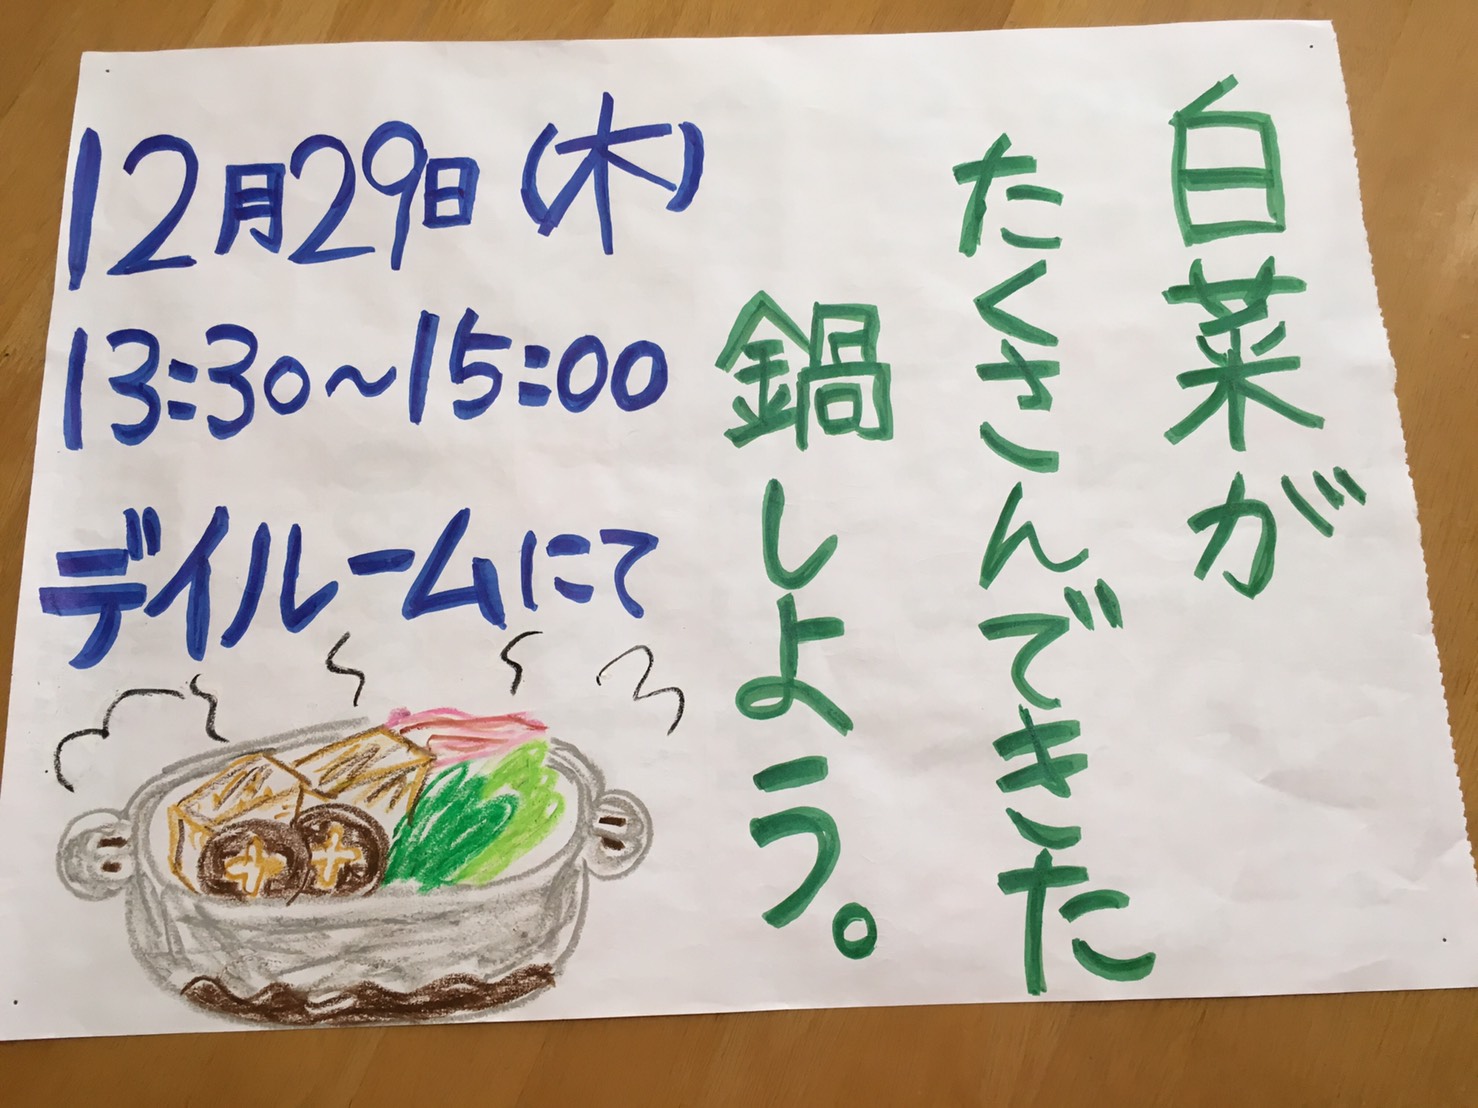 白菜が
たくさんできた
鍋しよう。
12月29日(木)
13:30~15:00
デイルームにて